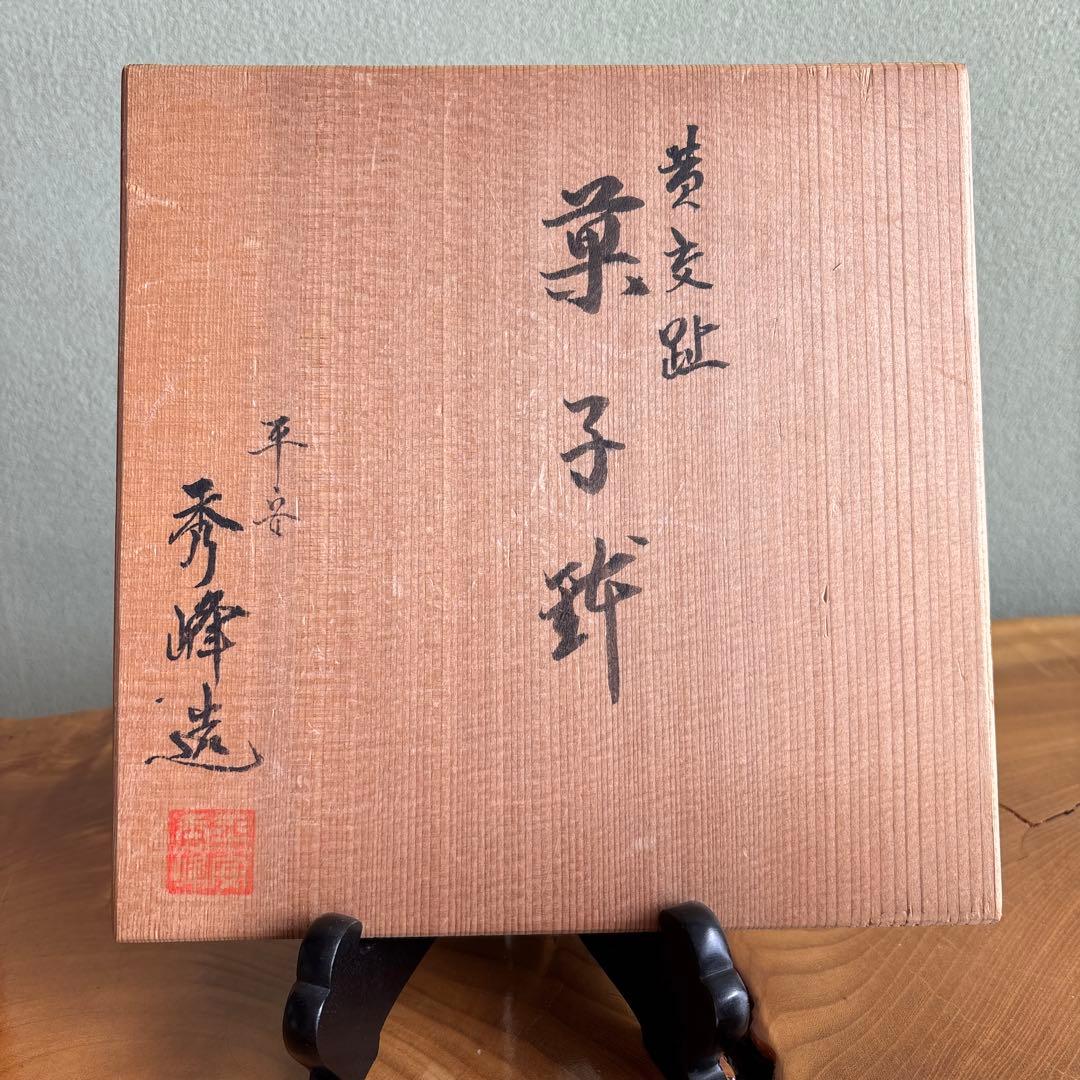 黄交趾
菓子鉢
平安
秀峰造